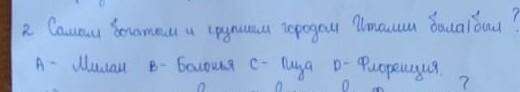 2 Самом богатом и крупним городом Италии была/был ?
A - Милан B - Болонья C - Пиза D - Флоренция
?